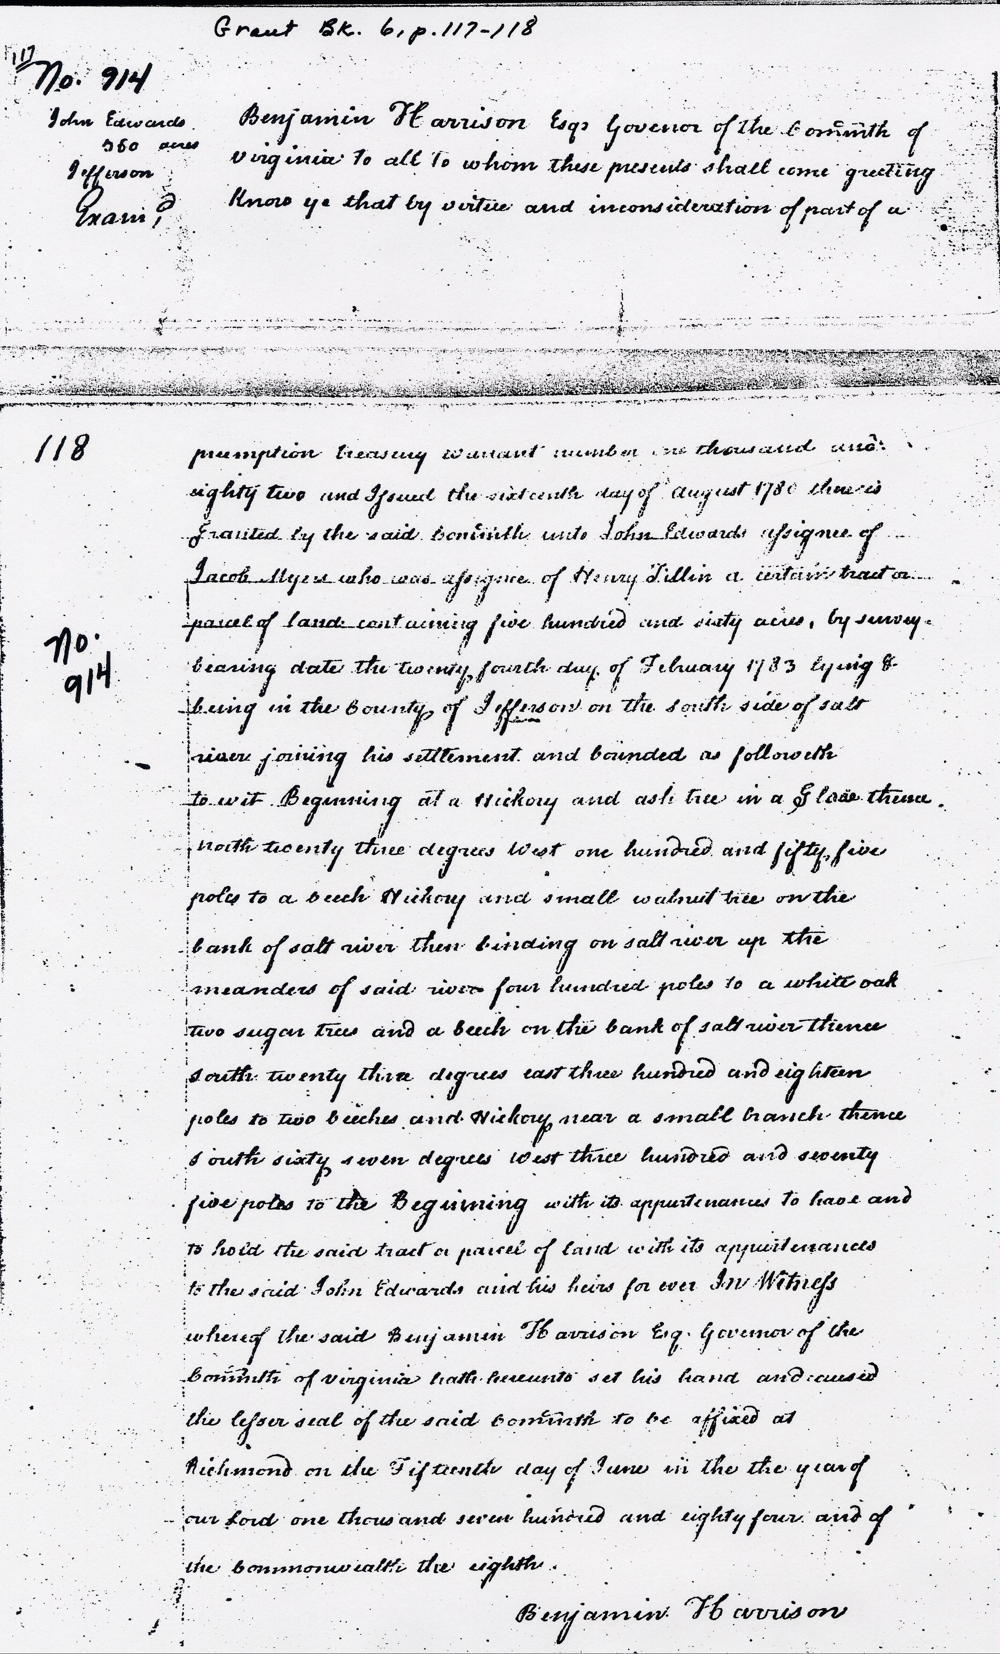 Grant Bk. 6, p. 117-118
117
No. 914
John Edwards
560 acres
Jefferson
Exam.d
Benjamin Harrison Esqr Govenor of the Commth of
Virginia to all to whom these presents shall come greeting
Know ye that by virtue and inconsideration of part of a
118
preemption treasury warrant number one thousand and
eighty two and Issued the sixteenth day of August 1780 there is
Granted by the said Commth unto John Edwards assignee of
Jacob Myers who was assignee of Henry Tillin a certain tract or
parcel of land containing five hundred and sixty acres, by survey
No.
914
bearing date the twenty fourth day of February 1783 lying &
being in the County of Jefferson on the south side of salt
river joining his settlement and bounded as followeth
to wit Beginning at a Hickory and ash tree in a Glade thence
north twenty three degrees West one hundred and fifty five
poles to a beech Hickory and small walnut tree on the
bank of salt river then binding on salt river up the
meanders of said river four hundred poles to a white oak
two sugar trees and a beech on the bank of salt river thence
south twenty three degrees east three hundred and eighteen
poles to two beeches and Hickory near a small branch thence
south sixty seven degrees West three hundred and seventy
five poles to the Beginning with its appurtenances to have and
to hold the said tract or parcel of land with its appurtenances
to the said John Edwards and his heirs for ever In Witness
whereof the said Benjamin Harrison Esq. Govenor of the
Commth of Virginia hath hereunto set his hand and caused
the lesser seal of the said Commth to be affixed at
Richmond on the Fifteenth day of June in the the year of
our Lord one thousand seven hundred and eighty four and of
the Commonwealth the eighth.
Benjamin Harrison